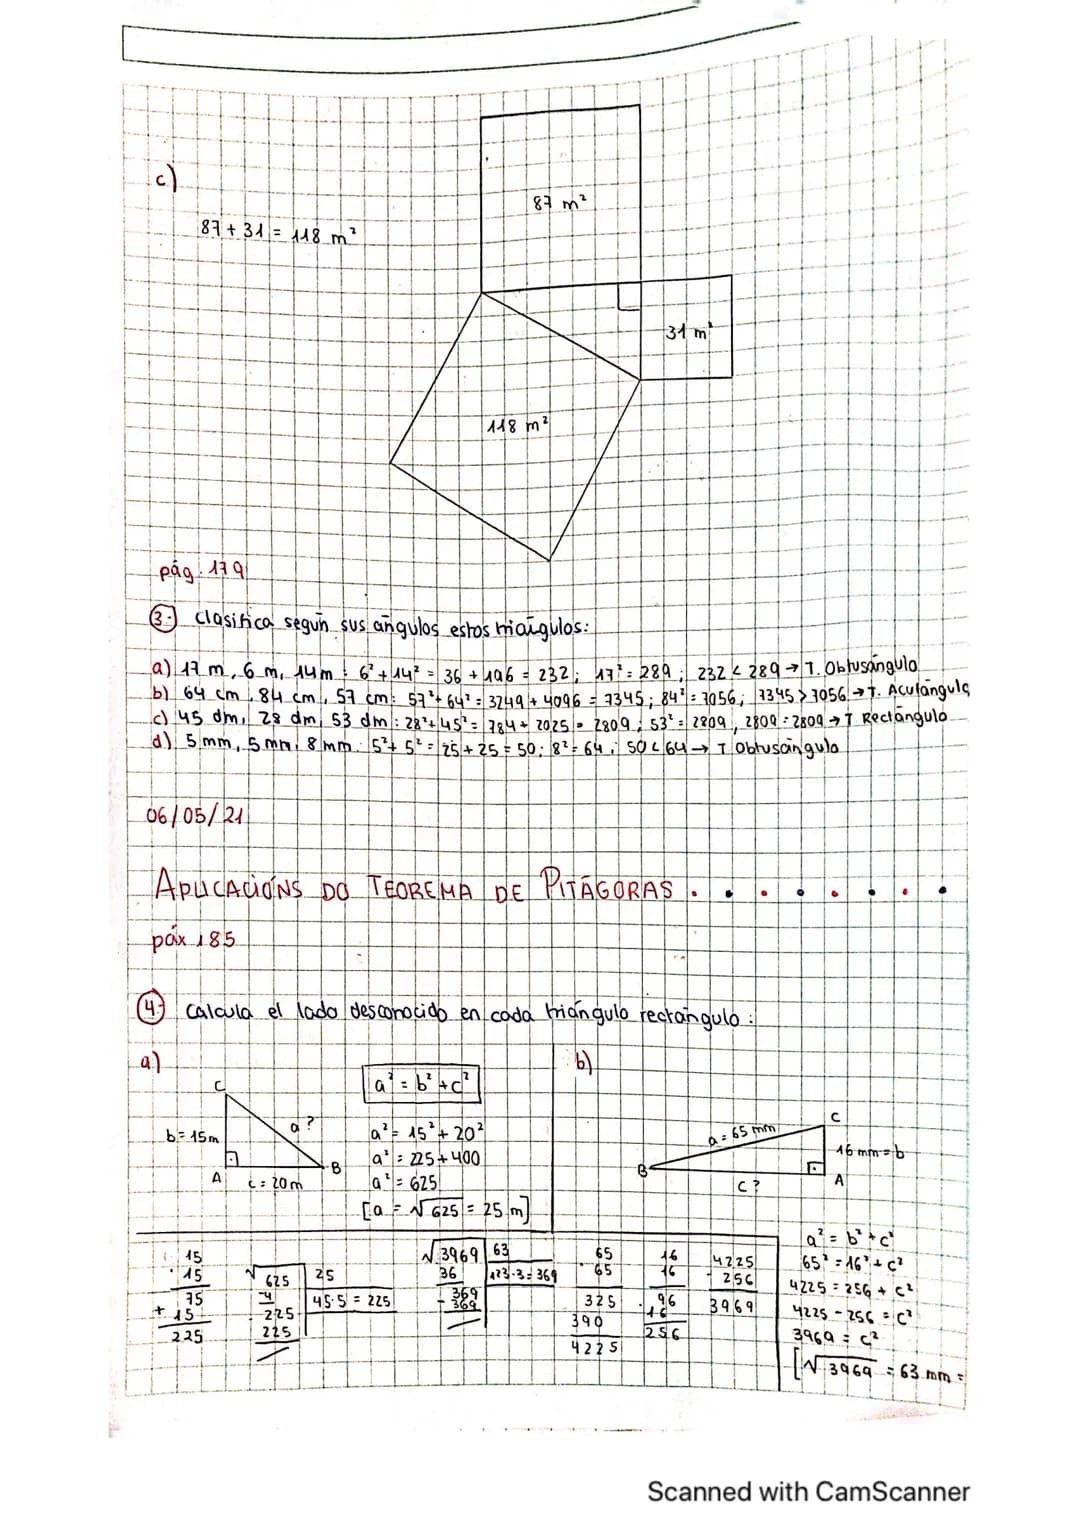 c)
87 m²
87 + 31 = 118 m²
31 m²
118 m²
pág. 179
3.- Clasifica según sus ángulos estos triángulos:
a) 17 m, 6 m, 14 m : 6² + 14² = 36 + 196 = 232; 17² = 289 ; 232 < 289 → T. Obtusángulo
b) 64 cm, 84 cm, 57 cm: 57² + 64² = 3249 + 4096 = 7345; 84² = 7056; 7345 > 7056 → T. Acutángulo
c) 45 dm, 28 dm, 53 dm : 28² + 45² = 784 + 2025 = 2809 ; 53² = 2809, 2809 = 2809 → T Rectángulo
d) 5 mm, 5 mm, 8 mm: 5² + 5² = 25 + 25 = 50; 8² = 64; 50 < 64 → T Obtusángulo
06/05/21
APLICACIÓNS DO TEOREMA DE PITÁGORAS
páx 185
4.- Calcula el lado desconocido en cada triángulo rectángulo :
a)
C
b = 15m
a ?
A
c = 20m
B
a² = b² + c²
a² = 15² + 20²
a² = 225 + 400
a² = 625
[a = √625 = 25 m]
b)
C
a = 65 mm
16 mm = b
B
c ?
A
15
· 15
75
+ 15
225
√625 25
4 45·5 = 225
225
225
√3969 63
36 123·3 = 369
369
- 369
65
· 65
325
390
4225
16
16
96
16
256
4225
- 256
3969
a² = b² + c²
65² = 16² + c²
4225 = 256 + c²
4225 - 256 = c²
3969 = c²
[√3969 = 63 mm =
Scanned with CamScanner